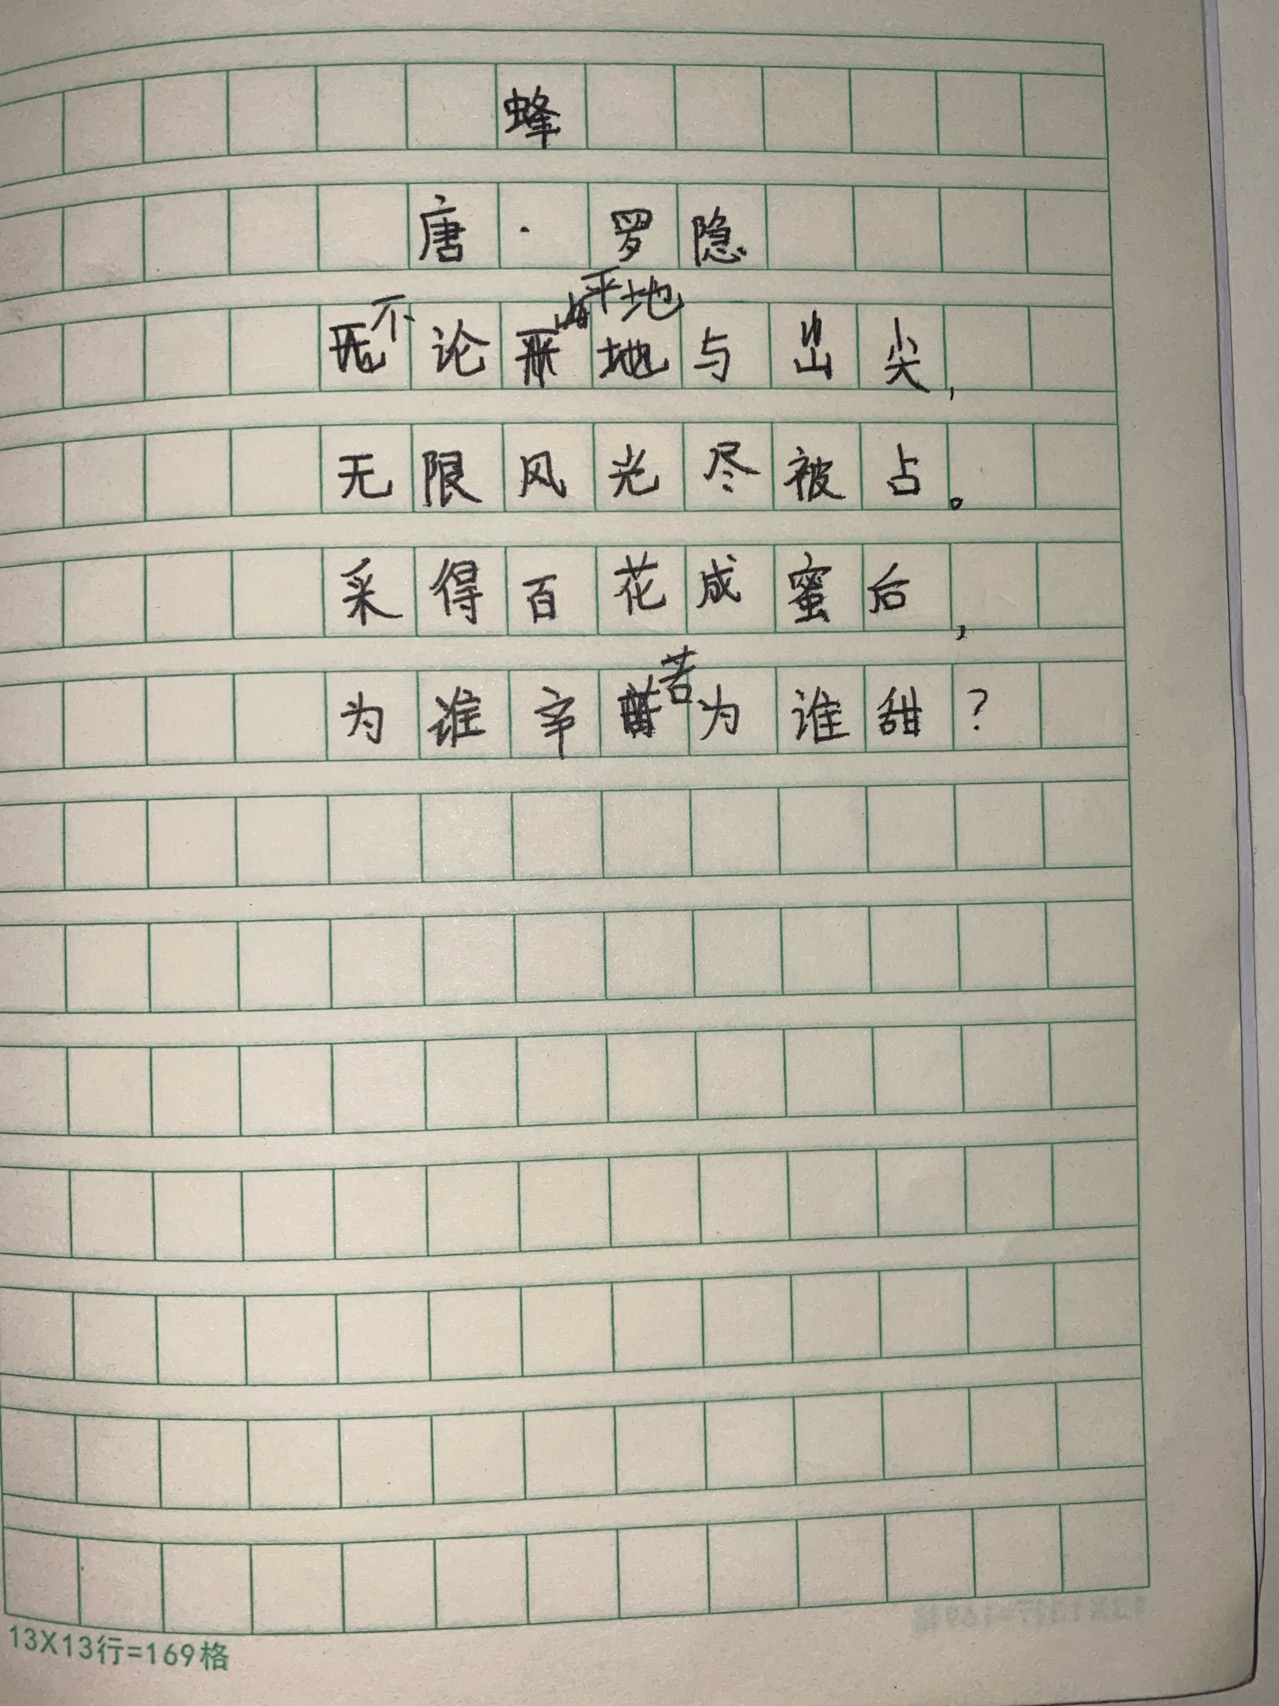 蜂
唐·罗隐
不论平地与山尖,
无限风光尽被占。
采得百花成蜜后,
为谁辛苦为谁甜?
13X13行=169格